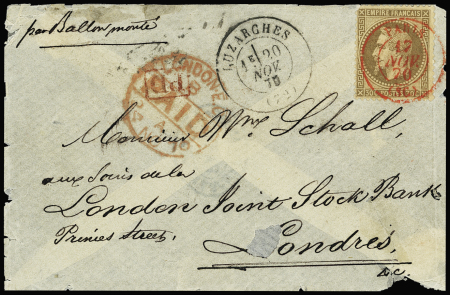 par Ballon monté
LUZARCHES
1E 20
NOV
70
(72)
EMPIRE FRANÇAIS
PARIS
17
NOV
70
LONDON
P.D.
PAID
Monsieur Wm. Schall,
aux soins de la
London Joint Stock Bank
Princes Street,
Londres.